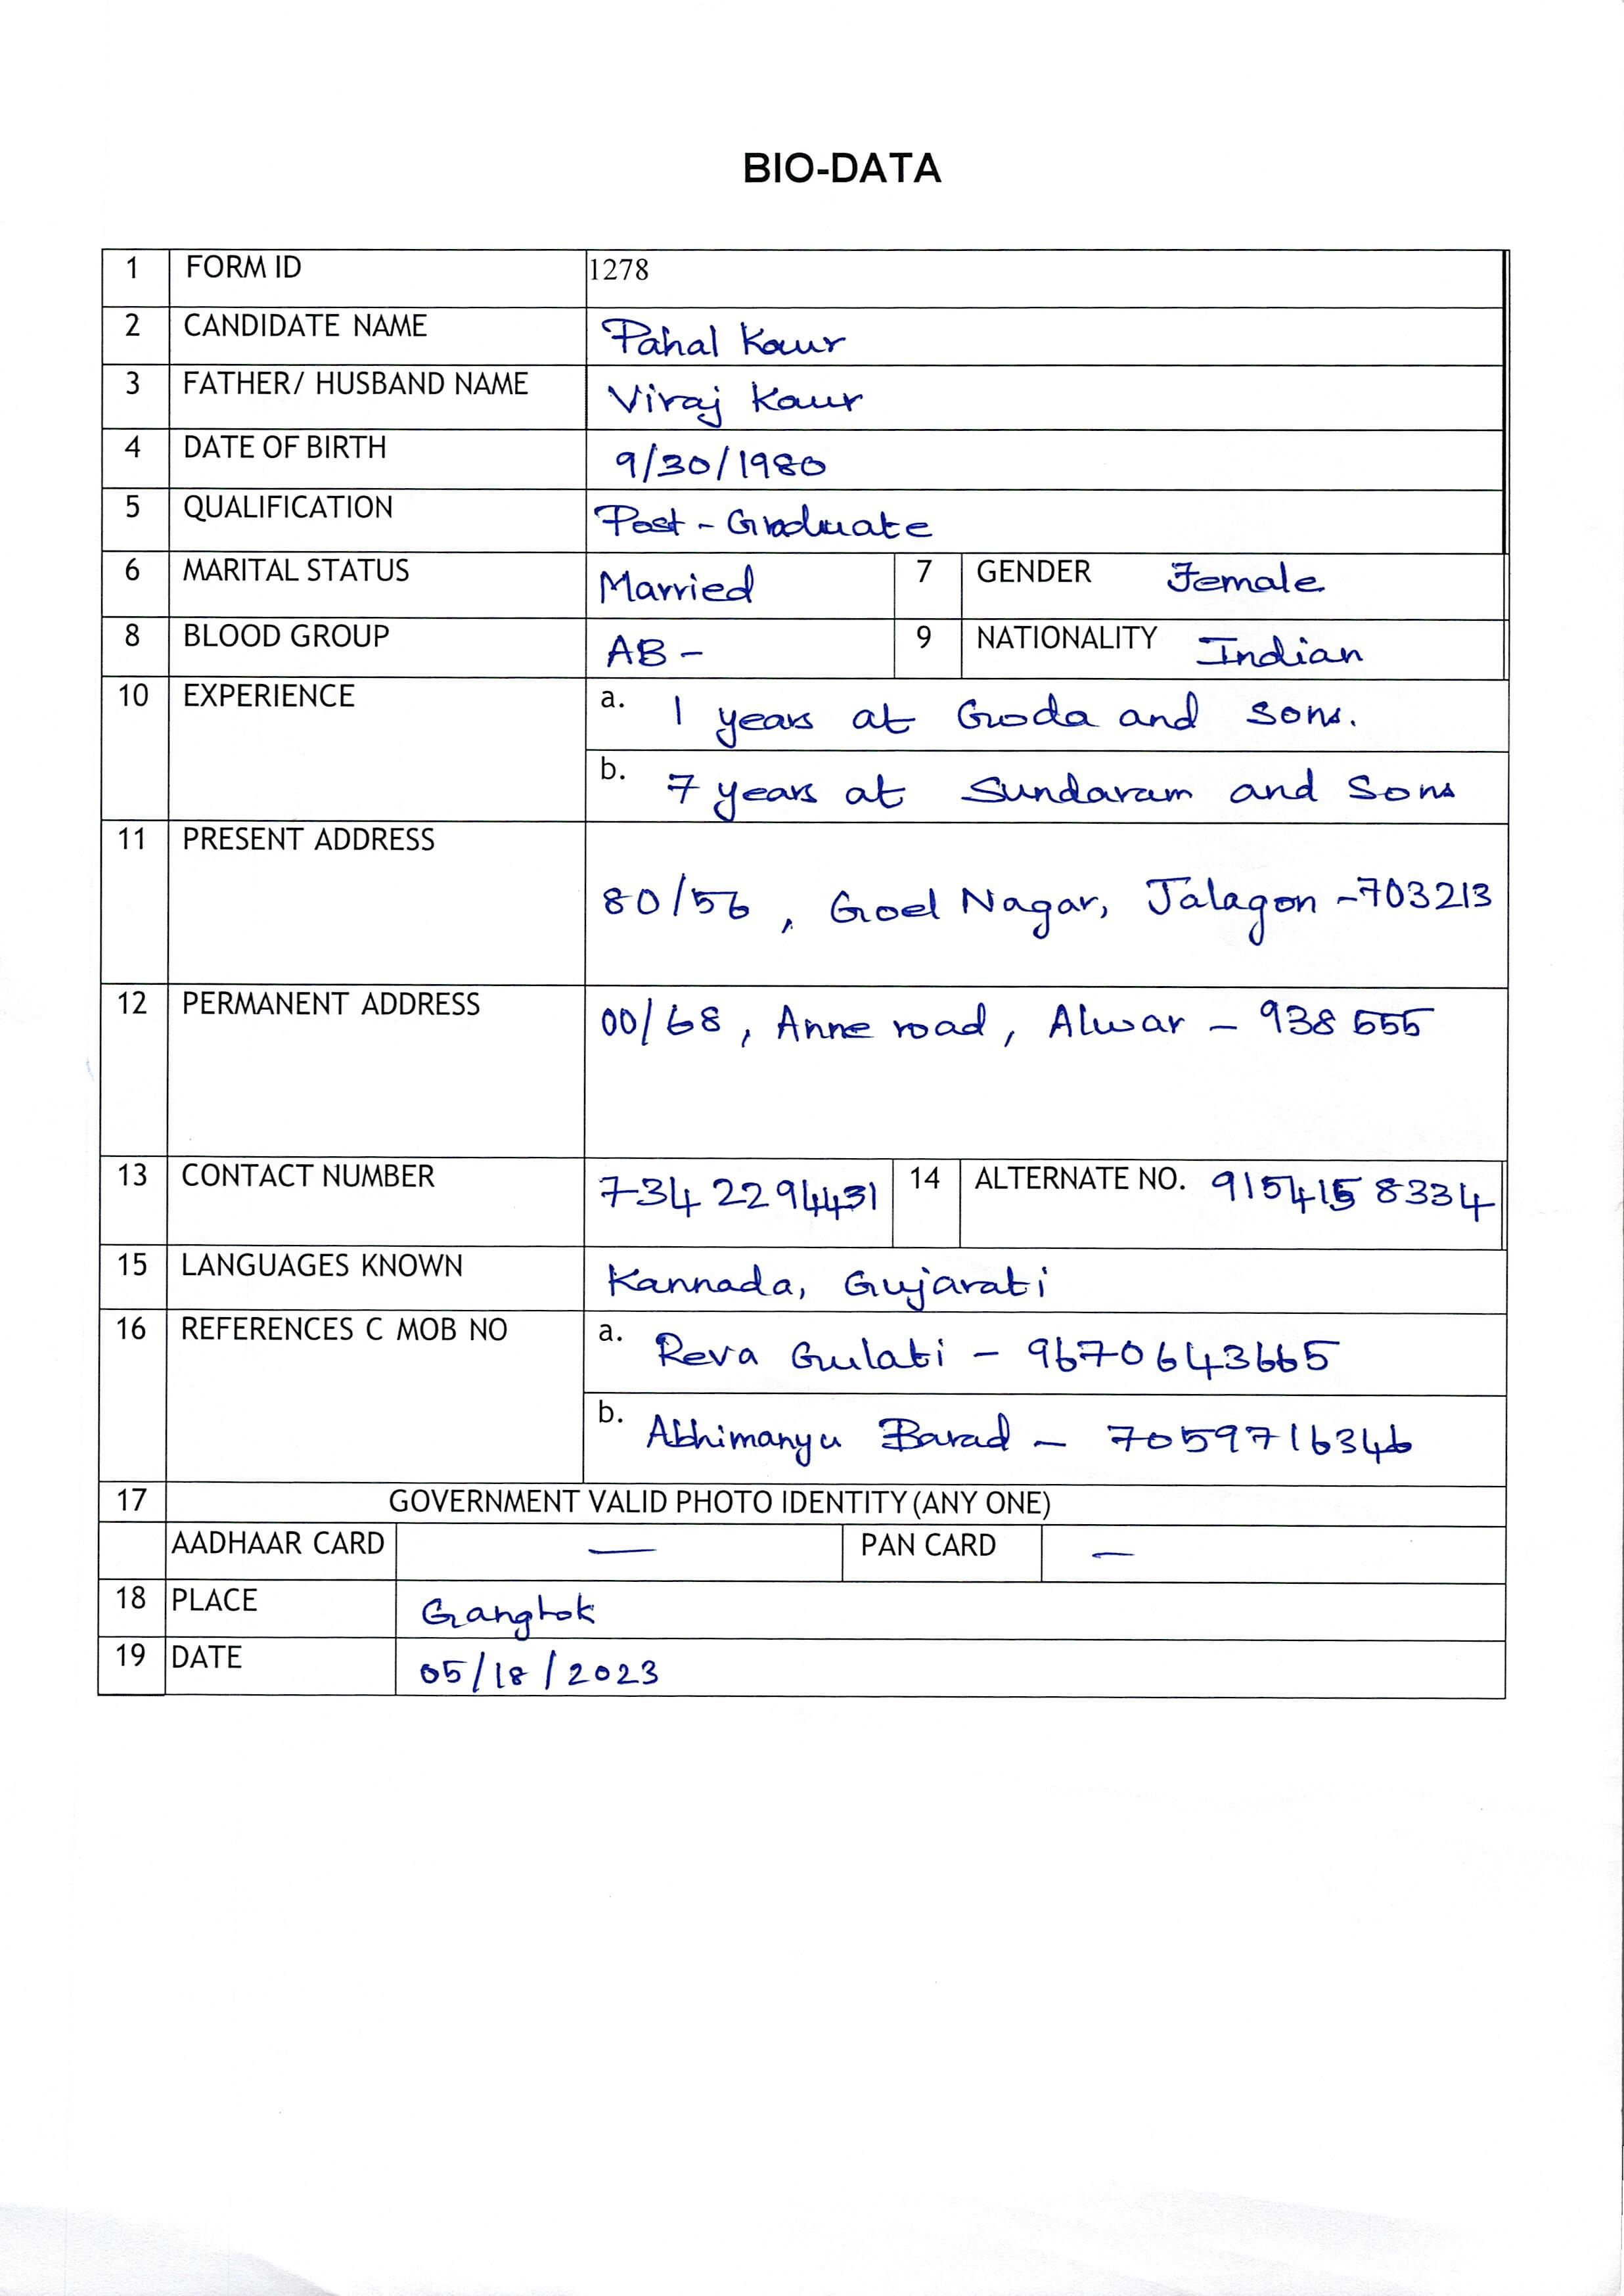 BIO-DATA
1 FORM ID 1278
2 CANDIDATE NAME Pahal Kaur
3 FATHER/ HUSBAND NAME Viraj Kaur
4 DATE OF BIRTH 9/30/1980
5 QUALIFICATION Post-Graduate
6 MARITAL STATUS Married 7 GENDER Female
8 BLOOD GROUP AB- 9 NATIONALITY Indian
10 EXPERIENCE a. 1 years at Goda and Sons.
b. 7 years at Sundaram and Sons
11 PRESENT ADDRESS
80/56, Goel Nagar, Jalagon -703213
12 PERMANENT ADDRESS 00/68, Anne road, Alwar - 938555
13 CONTACT NUMBER 7342294431 14 ALTERNATE NO. 9154158334
15 LANGUAGES KNOWN Kannada, Gujarati
16 REFERENCES C MOB NO a. Reva Gulati - 9670643665
b. Abhimanyu Barad - 7059716346
17 GOVERNMENT VALID PHOTO IDENTITY (ANY ONE)
AADHAAR CARD — PAN CARD —
18 PLACE Gangtok
19 DATE 05/18/2023